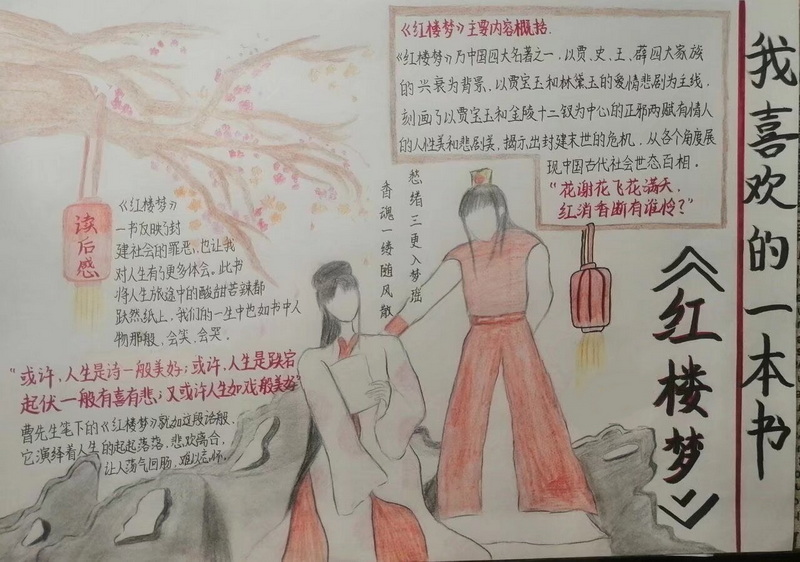 我喜欢的一本书
《红楼梦》
《红楼梦》主要内容概括.
《红楼梦》为中国四大名著之一,以贾、史、王、薛四大家族
的兴衰为背景,以贾宝玉和林黛玉的爱情悲剧为主线,
刻画了以贾宝玉和金陵十二钗为中心的正邪两赋有情人
的人性美和悲剧美,揭示出封建末世的危机,从各个角度展
现中国古代社会世态百相.
“花谢花飞花满天,
红消香断有谁怜?”
愁绪三更入梦瑶
香魂一缕随风散
读后感
《红楼梦》
一书反映了封
建社会的罪恶,也让我
对人生有了更多体会。此书
将人生旅途中的酸甜苦辣都
跃然纸上,我们的一生中也如书中人
物那般,会笑、会哭。
“或许,人生是诗一般美好;或许,人生是跌宕
起伏一般有喜有悲;又或许人生如戏般美好”
曹先生笔下的《红楼梦》就如这段话般,
它演绎着人生的起起落落,悲欢离合,
让人荡气回肠,难以忘怀.